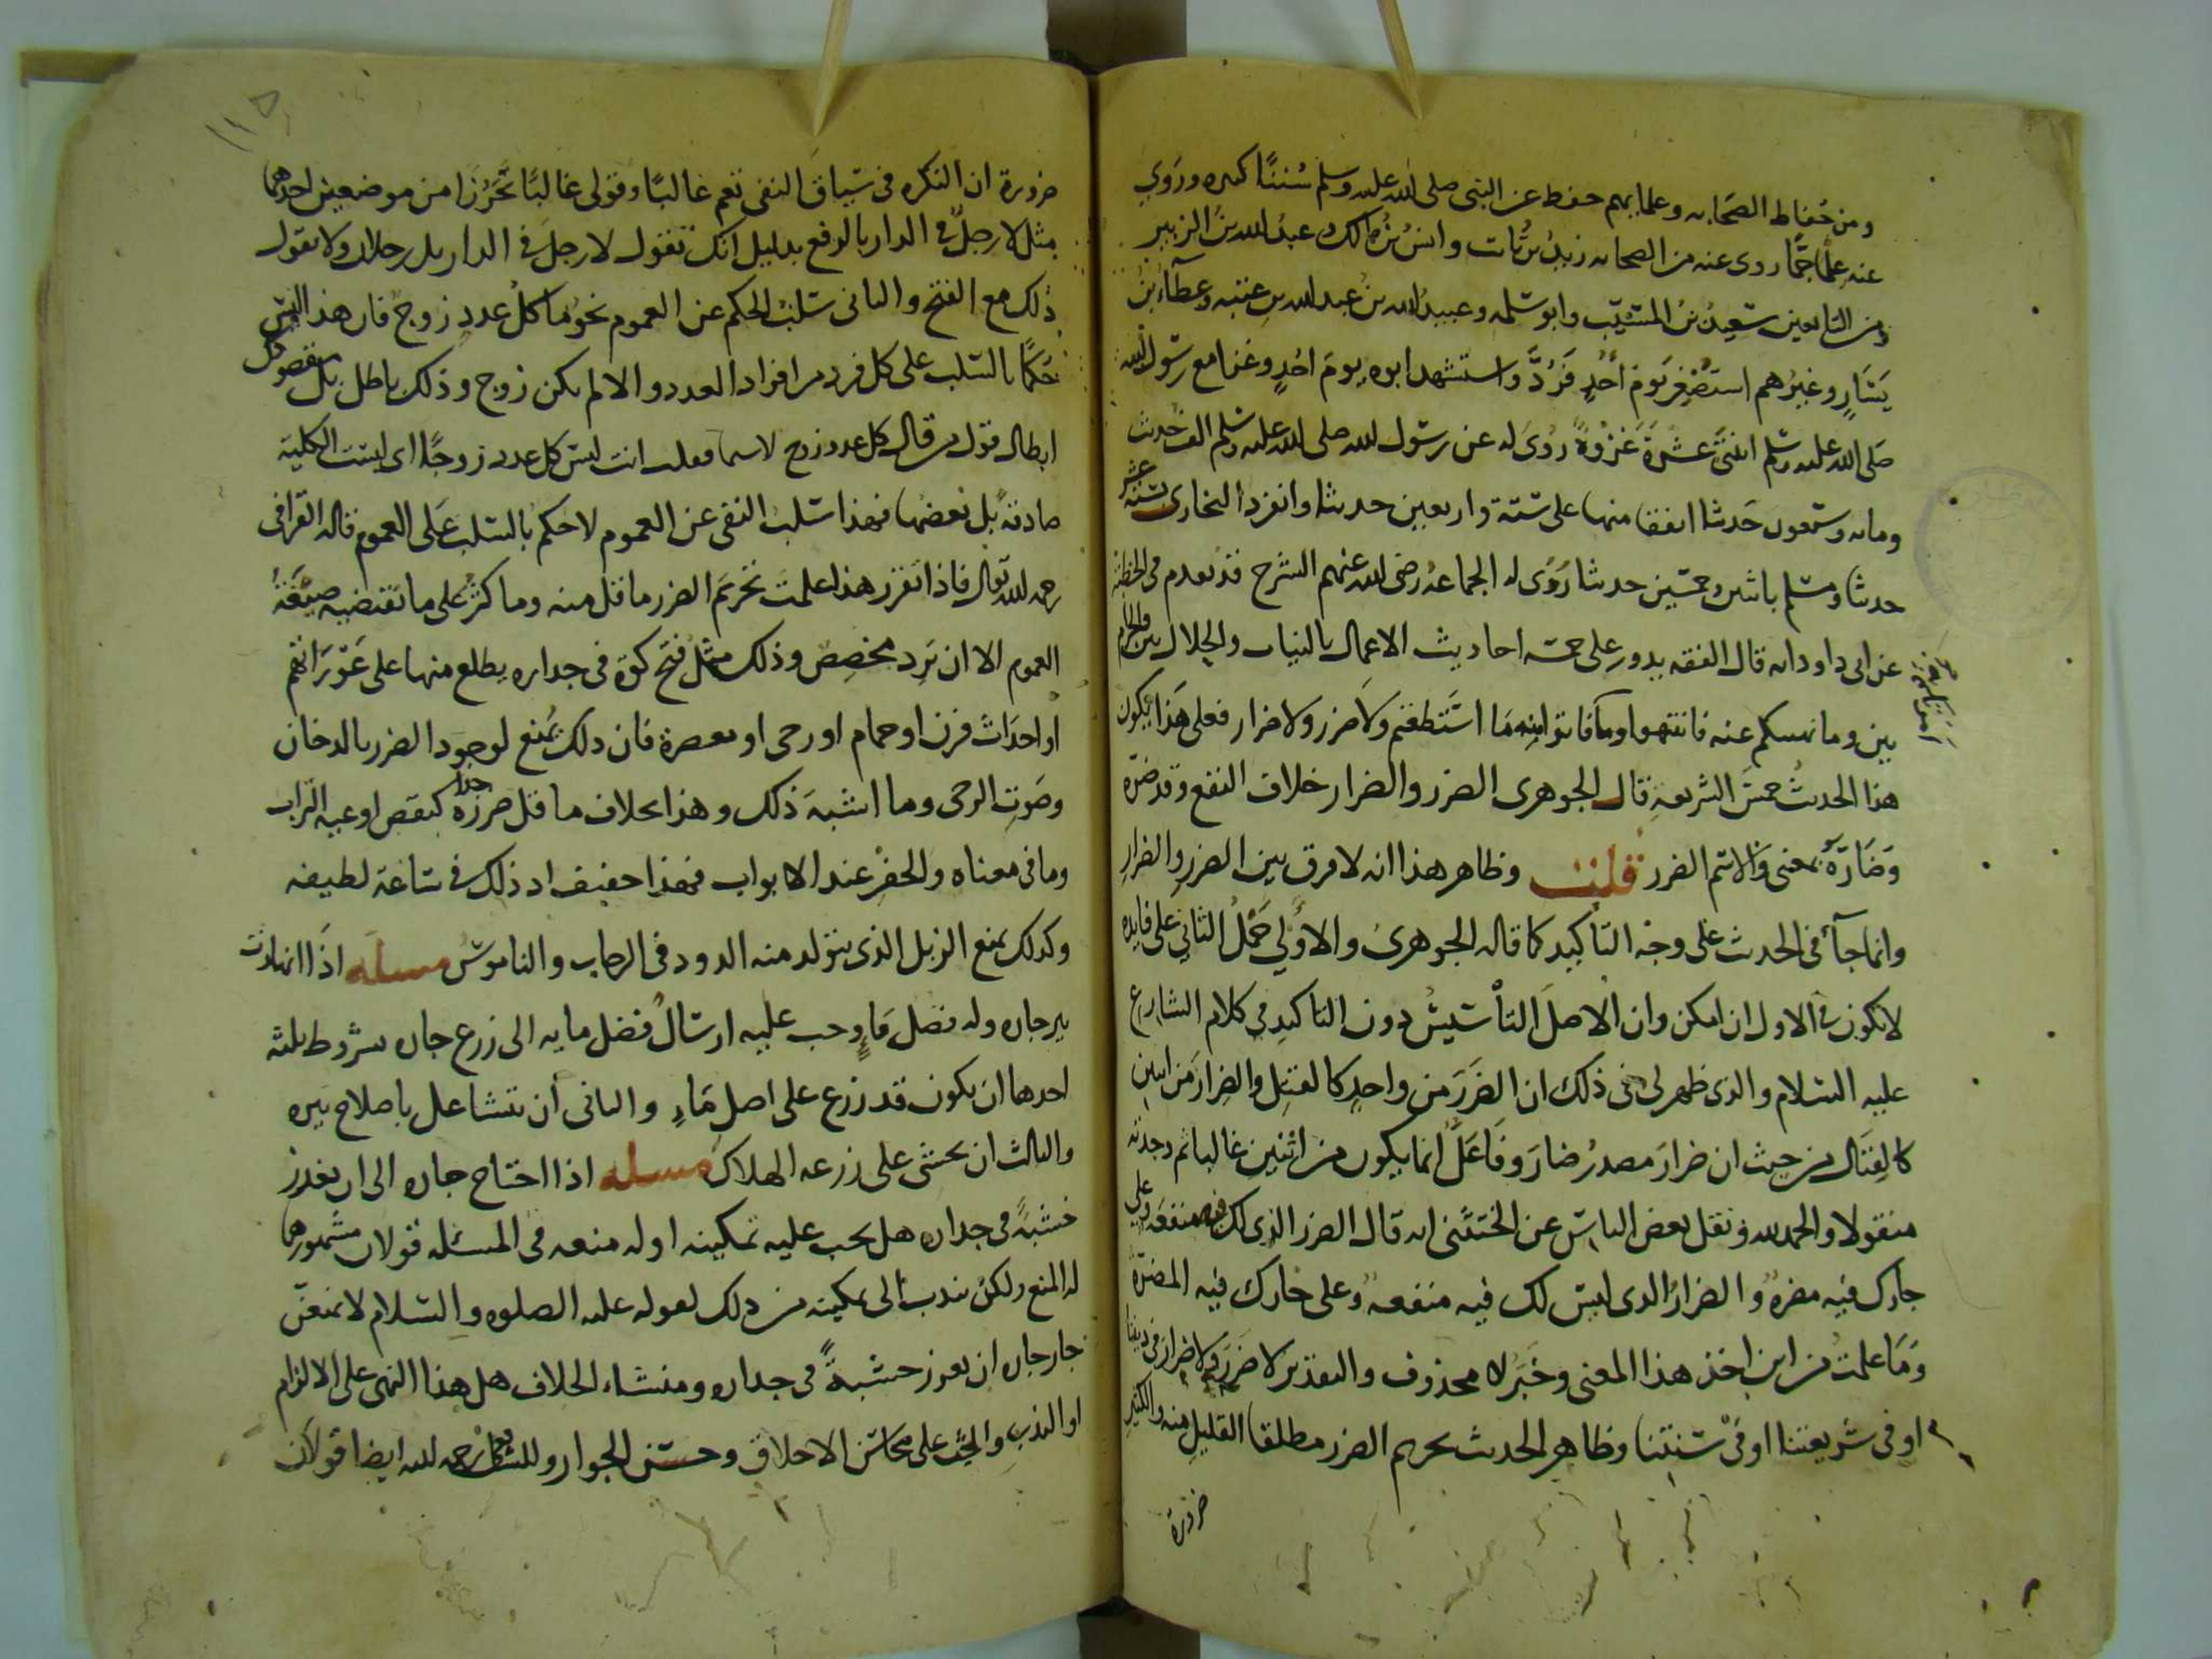 ومن حفاظ الصحابه وعلمايهم حفظ عن النبى صلى الله عليه وسلم سُننًا كثيره وروي
عنه علمًا جمًّا روى عنه من الصحابه زيد بن ثابت وانس بن مالك وعبد الله بن الزبير
ومن التابعين سعيد بن المسيّب وابو سلمه وعبيد الله بن عبد الله بن عتبه وعطآء بن
يَسَارٍ وغيرهم استُصْغِر يَومَ أُحُدٍ فَرُدَّ واستشهد ابوه يومَ احُدٍ وغزا مع رسول الله
صلى الله عليه وسلم اثنتى عشرةَ غزوةً رُوىَ له عن رسول الله صلى الله عليه وسلم الف حديث
ومايه وسبعون حديثا اتفقا منها على ستة واربعين حديثا وانفرد البخارى بستة عشر
حديثا ومسلم باثنين وخمسين حديثا رَوَى له الجماعه رضى الله عنهم الشرح قد تقدم فى الخطبة
عن ابى داود انه قال الفقه يدور على خمسة احاديث الاعمال بالنيات والحلال بين والحرام
بين وما نهيتكم عنه فانتهوا وما امرتكم به فاتوا منه مَا استَطعتم ولا ضرر ولا ضرار فعلى هَذا يكون
هذا الحديثُ خمسَ الشريعةِ قال الجوهرى الضرر والضرار خلاف النفع وقد ضرّه
وَضَارَّهُ بمعنى والاسم الضرر قلت وظاهر هذا انه لا فرق بين الضرر والضرار
وانما جآء فى الحديث على وجه التأكيد كما قاله الجوهرى والاولى حَمْلُ الثاني على فايده
لا تكون فى الاول ان امكن وان الاصلَ التأسيسُ دون التاكيد في كلام الشارع
عليه السلام والذى ظهر لى فى ذلك ان الضَرَرَ من واحدٍ كالقتل والضِرارَ من اثنين
كالقِتَال من حيث ان ضرارَ مصدرُ ضارَر وفَاعَلَ انما يكون من اثنين غالبا ثم وجدته
منقولا والحمد لله ونقل بعض الناس عن الخشنى انه قال الضرر الذى لك فيه منفعة وعلى
جارك فيه مضرة والضرارُ الذى ليس لك فيه منفعة وعلى جارك فيه المضرّة
وَمَا علمتُ من اين اخذ هذا المعنى وخَبَرُ لا محذوف والتقدير لا ضَرَرَ ولا ضرارَ فى ديننا
او فى شريعتنا او فى سُنتِنا وظاهر الحديث تحريم الضرر مطلقا القليلِ منه والكثير
ضرورة
ضرورة ان النكره فى سياق النفى تعم غالبًا وقولى غالبًا تَحَرُّزًا من موضعين احدهما
مثل لا رجلٌ فى الدار بالرفع بدليل انك تقول لا رجل فى الدار بل رجلان ولا تقول
ذلك مع الفتح والثانى سَلبُ الحكم عن العموم نحو ما كلُ عددٍ زوج فان هذا ليس
حُكمًا بالسلب على كل فرد من افراد العدد والا لم يكن زوج وذلك باطل بل مقصودك
ابطال قول من قال كل عدد زوج لا سيما فقلت انت ليس كل عدد زوجًا اى ليست الكلية
صادقة بل بعضها فهذا سلب النفى عن العموم لا حكم بالسلب عَلى العموم قاله القرافى
رحمه الله تعالى فاذا تقرر هذا علمتَ تحريمَ الضرر ما قل منه وما كثُر على ما تقتضيه صيغَةُ
العموم الا ان يَرِد مخصِص وذلك مثل فتح كوّة فى جداره يطلع منها على عَوْرَاتهم
او احدَاث فرن او حمام او رحى او معصرة فان ذلك يُمنع لوجود الضرر بالدخان
وصَوتِ الرحى وما اشبهَ ذلك وهذا بخلاف ما قل ضرره جدا كنفض اوعية التراب
وما فى معناه والحفْرِ عند الابواب فهذا خفيف اذ ذلك فى ساعة لطيفه
وكذلك يمنع الزبل الذى يتولد منه الدود فى الرحاب والناموس مسله اذا انهارت
بير جاره وله فضل مَاءٍ وجب عليه ارسالُ فضل مايه الى زرع جاره بشروط ثلثه
احدها ان يكون قد زرع على اصل مَاءٍ والثانى أن يتشاغل باصلاح بيره
والثالث ان يخشى على زرعه الهلاك مسله اذا احتاج جاره الى ان يغرز
خشبةً فى جداره هل يجب عليه تمكينه او له منعه فى المسئله قولان مشهورهما
له المنع ولكن يندب الى تمكينه من ذلك لقوله عليه الصلوه والسلام لا يمنعنّ
جار جاره ان يغرز خشبةً فى جداره ومنشاء الخلاف هل هذا النهى على الالزام
او الندبِ والحثّ على مَحَاسَنِ الاخلاق وحسن الجوار وللشافعى رحمه الله ايضا قولان